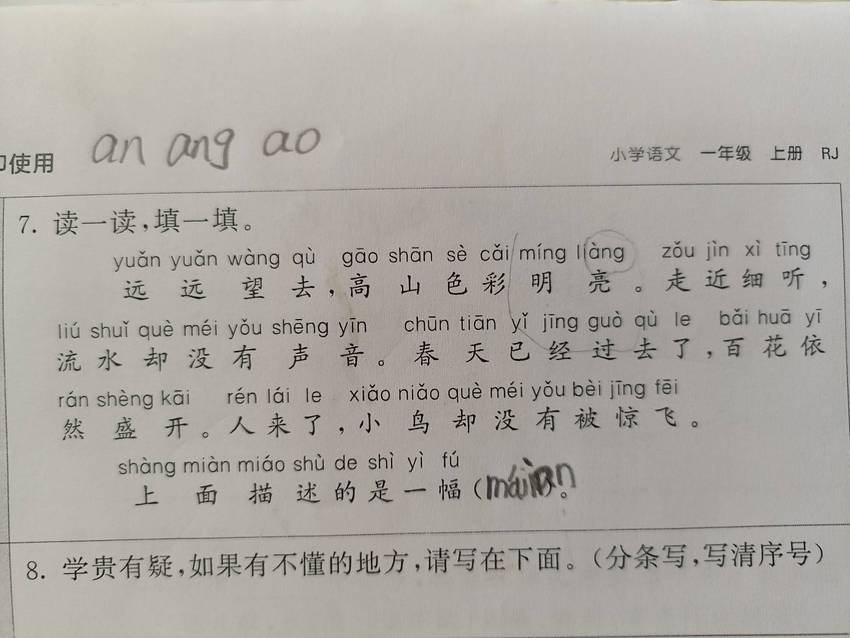 an ang ao
印使用
小学语文 一年级 上册 RJ
7. 读一读,填一填。
yuǎn yuǎn wàng qù gāo shān sè cǎi míng liàng zǒu jìn xì tīng
远远望去,高山色彩明亮。走近细听,
liú shuǐ què méi yǒu shēng yīn chūn tiān yǐ jīng guò qù le bǎi huā yī
流水却没有声音。春天已经过去了,百花依
rán shèng kāi rén lái le xiǎo niǎo què méi yǒu bèi jīng fēi
然盛开。人来了,小鸟却没有被惊飞。
shàng miàn miáo shù de shì yì fú
上面描述的是一幅( )。
8. 学贵有疑,如果有不懂的地方,请写在下面。(分条写,写清序号)